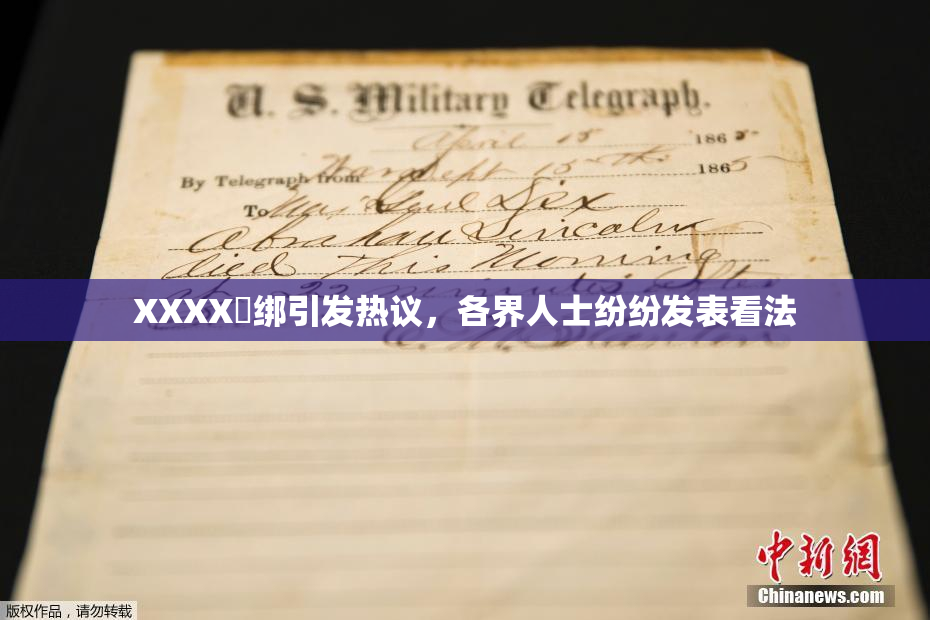 U. S. Military Telegraph.
April 15 1865
By Telegraph from War Dept 15th 1865
To Maj Genl Dix
Abraham Lincoln
died This Morning
at 22 minutes after
XXXX绑引发热议，各界人士纷纷发表看法
中新網
Chinanews.com
版权作品，请勿转载